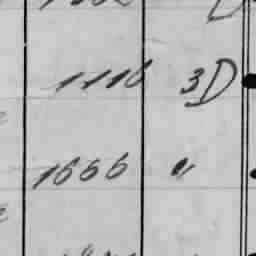 1116 3D
1666 "